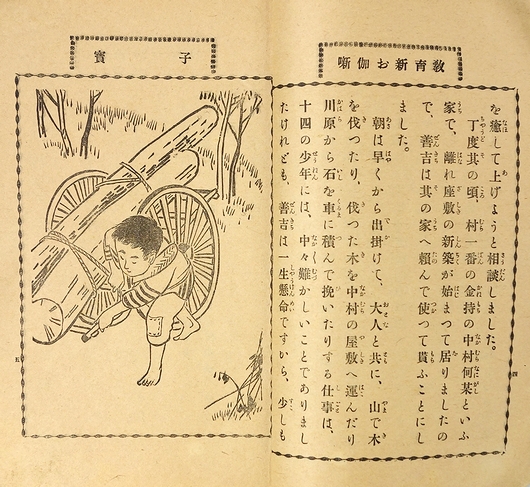 教育新お伽噺
を癒して上げようと相談しました。
丁度其の頃、村一番の金持の中村何某といふ
家で、離れ座敷の新築が始まつて居りましたの
で、善吉は其の家へ頼んで使つて貰ふことにし
ました。
朝は早くから出掛けて、大人と共に、山で木
を伐つたり、伐つた木を中村の屋敷へ運んだり
川原から石を車に積んで挽いたりする仕事は、
十四の少年には、中々難かしいことでありまし
たけれども、善吉は一生懸命ですから、少しも
子寶